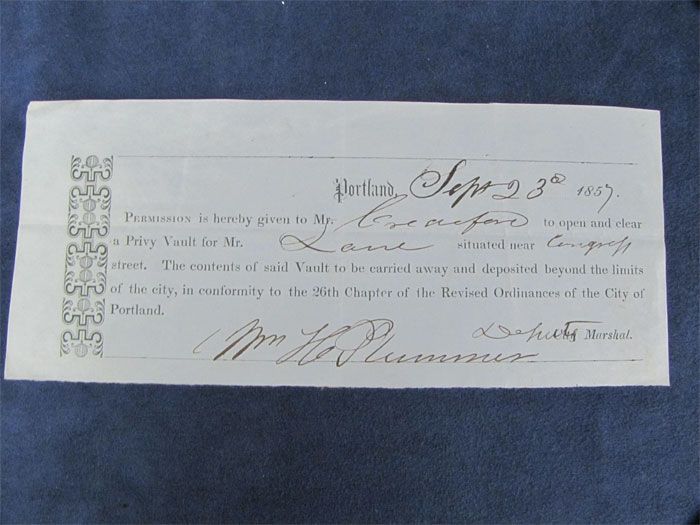 Portland, Sept 23d 1857.
PERMISSION is hereby given to Mr. Crawford to open and clear
a Privy Vault for Mr. Lane situated near Congress
street. The contents of said Vault to be carried away and deposited beyond the limits
of the city, in conformity to the 26th Chapter of the Revised Ordinances of the City of
Portland.
Wm H Plummer Deputy Marshal.